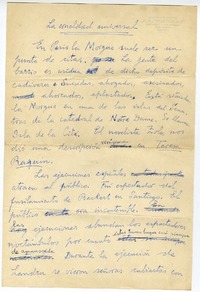 La crueldad universal
En París la Morgue suele ser un
punto de citas. La gente del
barrio es asidua de dicho depósito de
cadáveres: Suicidas, ahogados, asesinados
ahorcados, aplastados. Está situada
la Morgue en una de las islas del Sena,
tras de la catedral de Notre Dame. Se llama
Isla de la Cité. El novelista Zola nos
dió una descripción en Teresa
Raquin.
Las ejecuciones españolas
atraen al público. Fui espectador del
fusilamiento de Brackert en Santiago. El
público
ejecuciones abundan los espectadores
Durante la ejecución de
Landru se vieron señoras subidas con